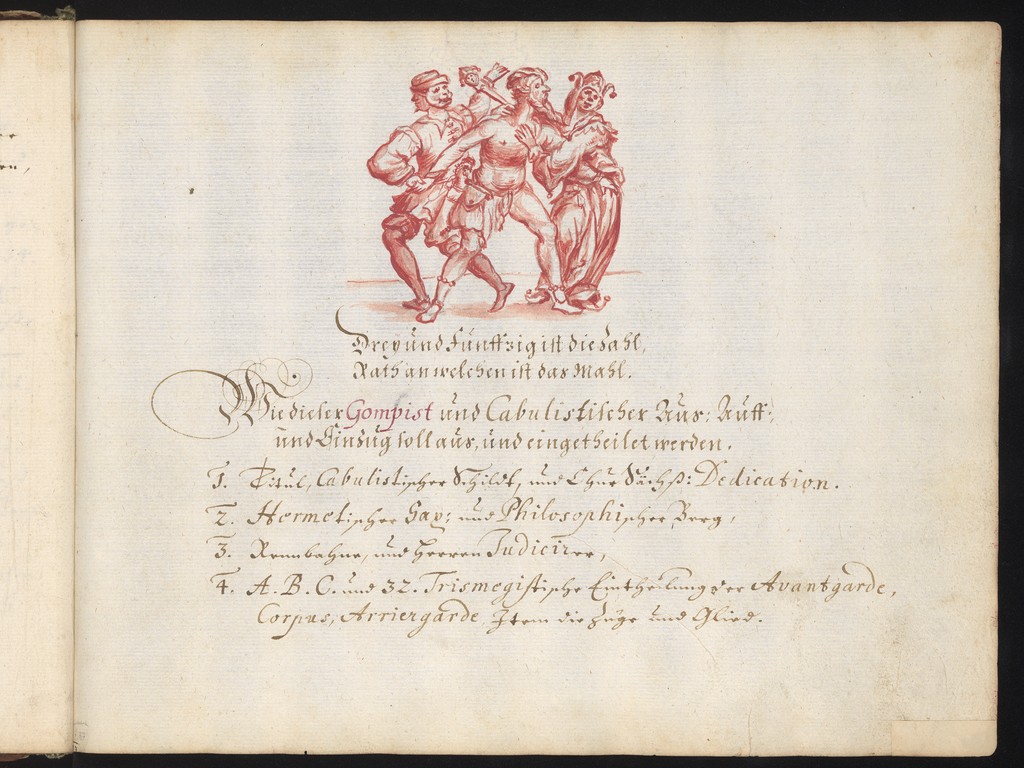 Dreÿ und Fünfftzig ist die Zahl,
Rath an welchen ist das Mahl.
Wie dieser Gompist und Cabulistischer Aus: Auff:
und Einzug soll aus, und eingetheilet werden.
1. Titul, Cabulistischer Schildt, und Chur Sächß: Dedication.
2. Hermetischer Hay: und Philosophischer Berg,
3. Rennbahne, und Herren Judicirer,
4. A. B. C. und 32. Trismegistische Eintheilung der Avantgarde,
Corpus, Arriergarde, Item die Züge und Glied.